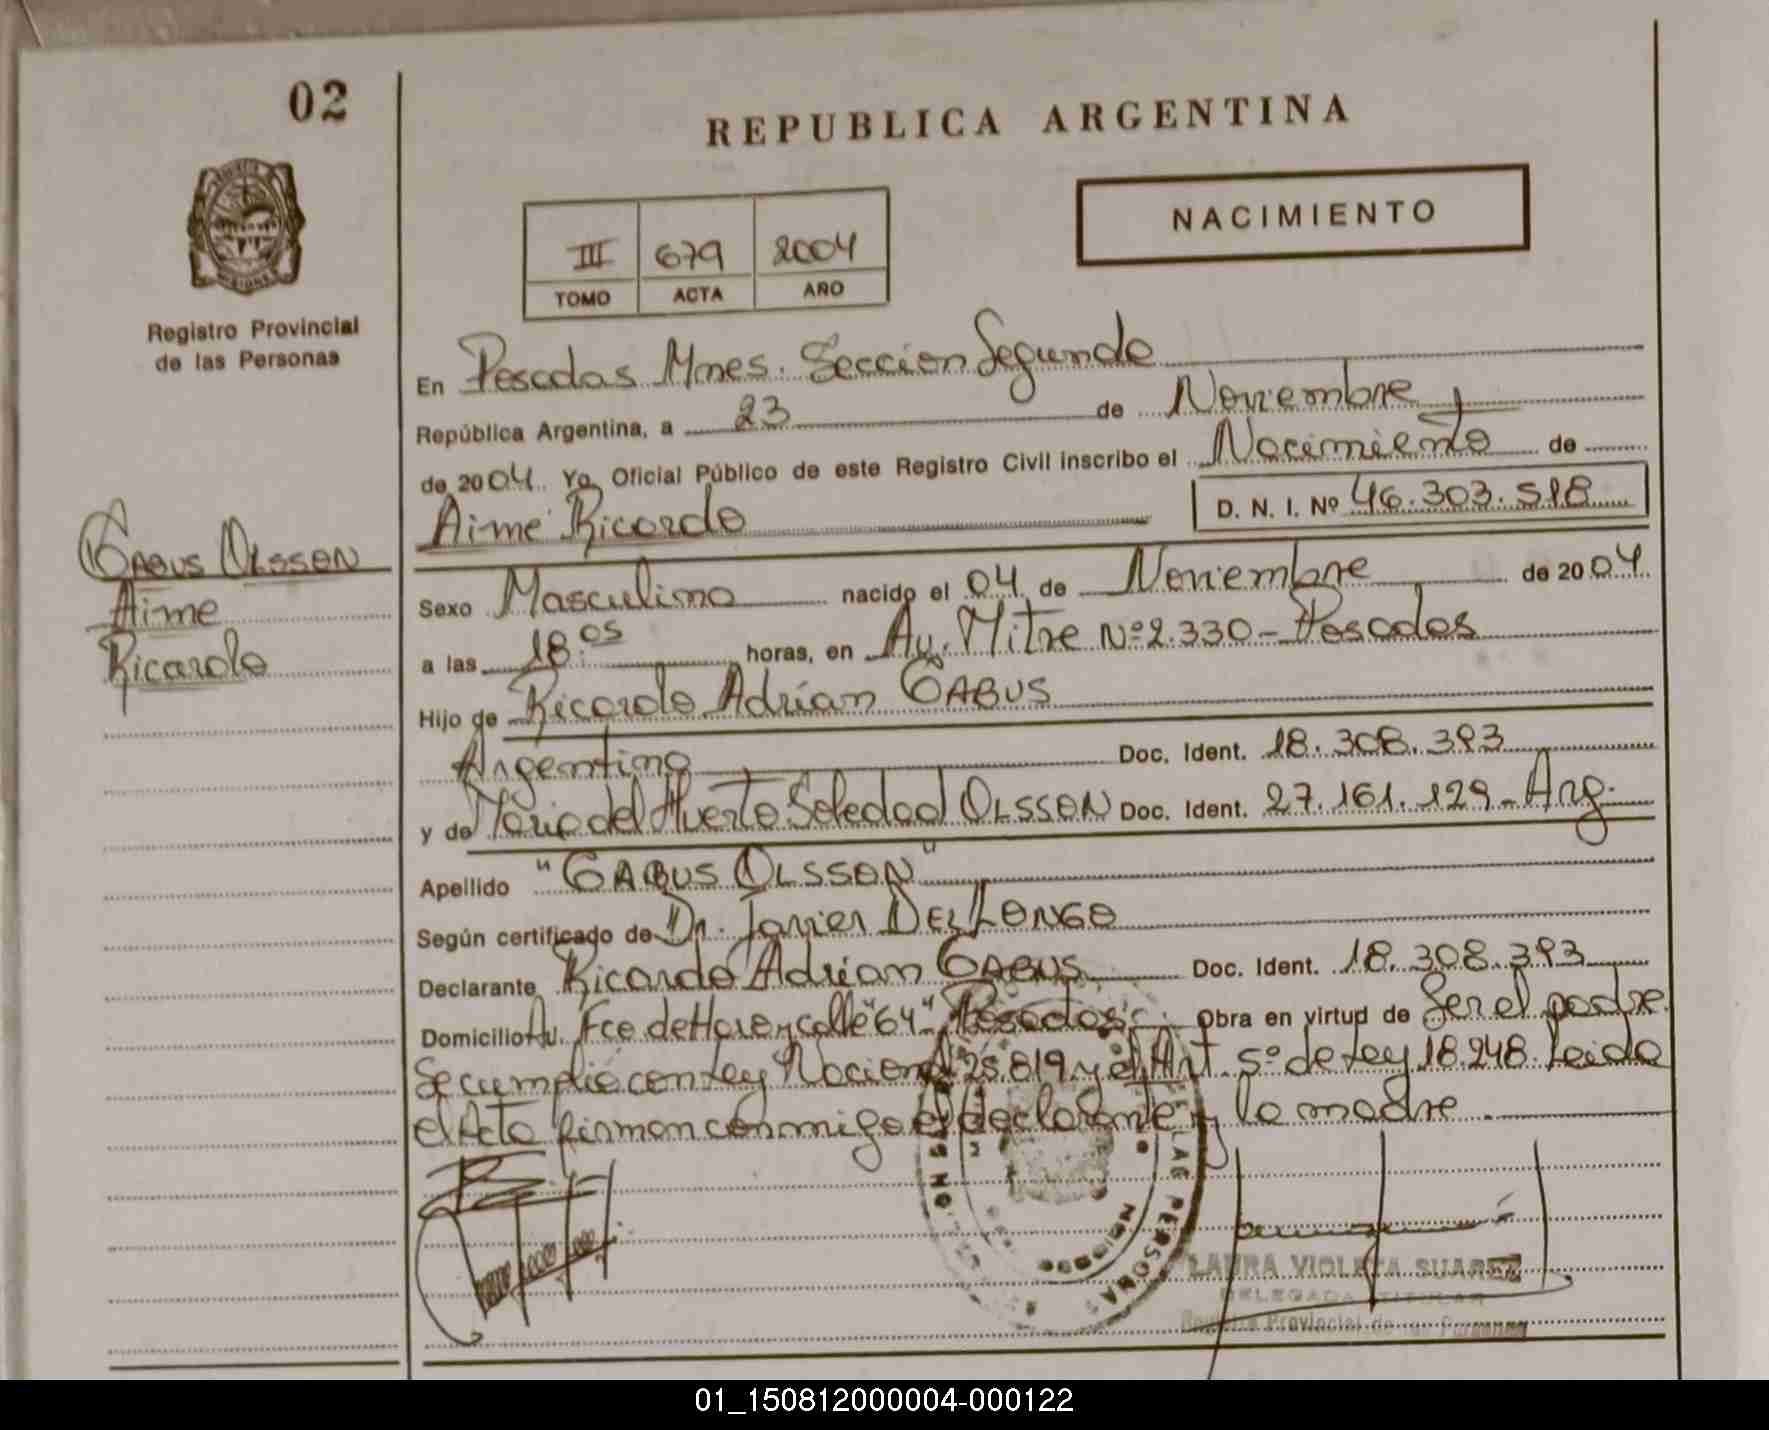 02
REPUBLICA ARGENTINA
NACIMIENTO
III 679 2004
TOMO ACTA AÑO
Registro Provincial
de las Personas
En Posadas Mnes. Sección Segunda
República Argentina, a 23 de Noviembre
de 2004. Yo, Oficial Público de este Registro Civil inscribo el Nacimiento de
Aime Ricardo D. N. I. Nº 46.303.518
GABUS OLSSON
Aime
Ricardo
Sexo Masculino nacido el 04 de Noviembre de 2004
a las 18:05 horas, en Av. Mitre Nº 2.330 - Posadas
Hijo de Ricardo Adrián GABUS
Argentino Doc. Ident. 18.308.393
y de María del Huerto Soledad OLSSON Doc. Ident. 27.161.129 - Arg.
Apellido "GABUS OLSSON"
Según certificado de Dr. Javier DEL LONGO
Declarante Ricardo Adrián GABUS Doc. Ident. 18.308.393
Domicilio Av. Fco. de Haro y calle "64" - Posadas. Obra en virtud de Ser el padre.
Se cumplió con Ley Nacional 25.819 y el Art. 5º de Ley 18.248. Leida
el Acta firman conmigo el declarante y la madre.
LAURA VIOLETA SUAREZ
DELEGADA TITULAR
Registro Provincial de las Personas
01_150812000004-000122